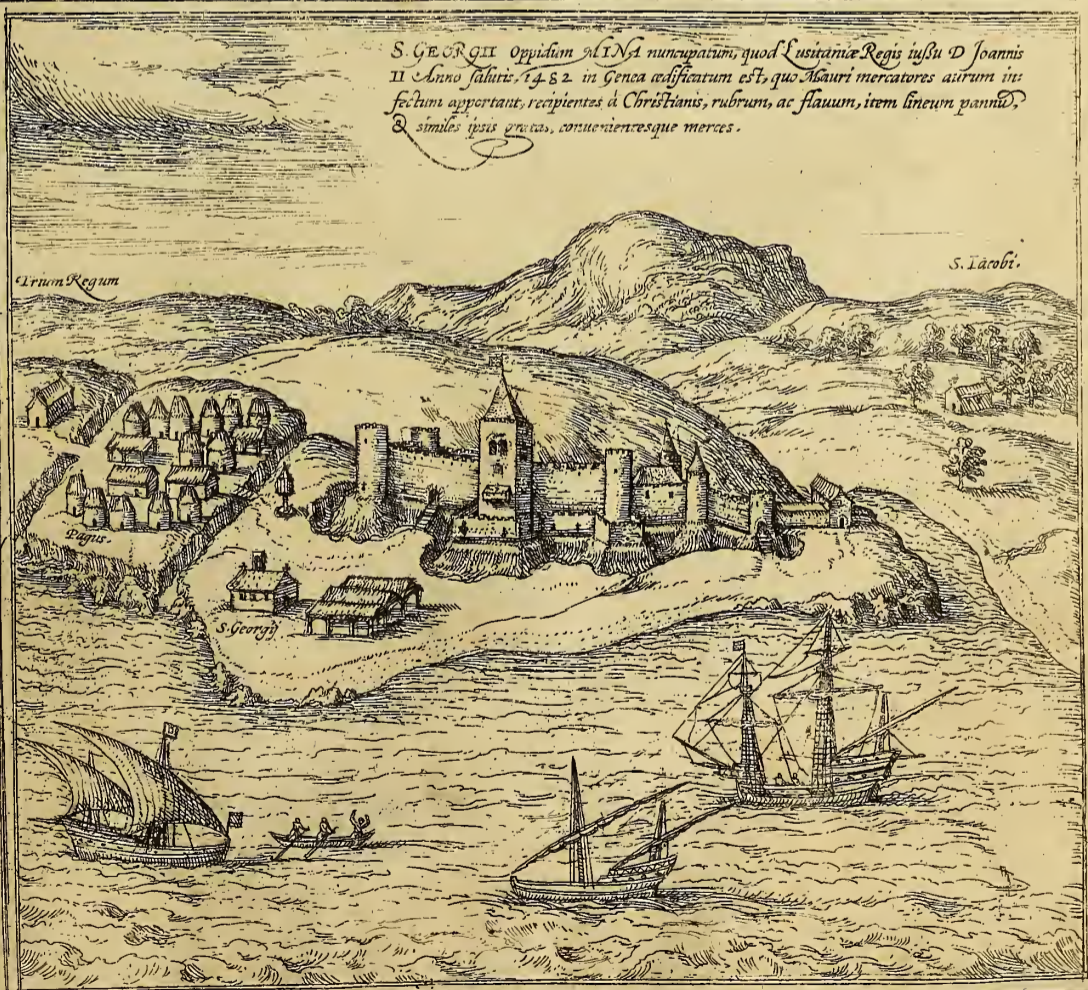 S. GEORGII Oppidum MINA nuncupatum, quod Lusitaniæ Regis iußu D Joannis
II Anno salutis, 1482 in Genea ædificatum est, quo Mauri mercatores aurum in=
fectum apportant, recipientes à Christianis, rubrum, ac flauum, item lineum pannũ,
& similes ipsis gratas, conuenientesque merces.
Trium Regum
S. Iacobi.
Pagus.
S. Georgÿ